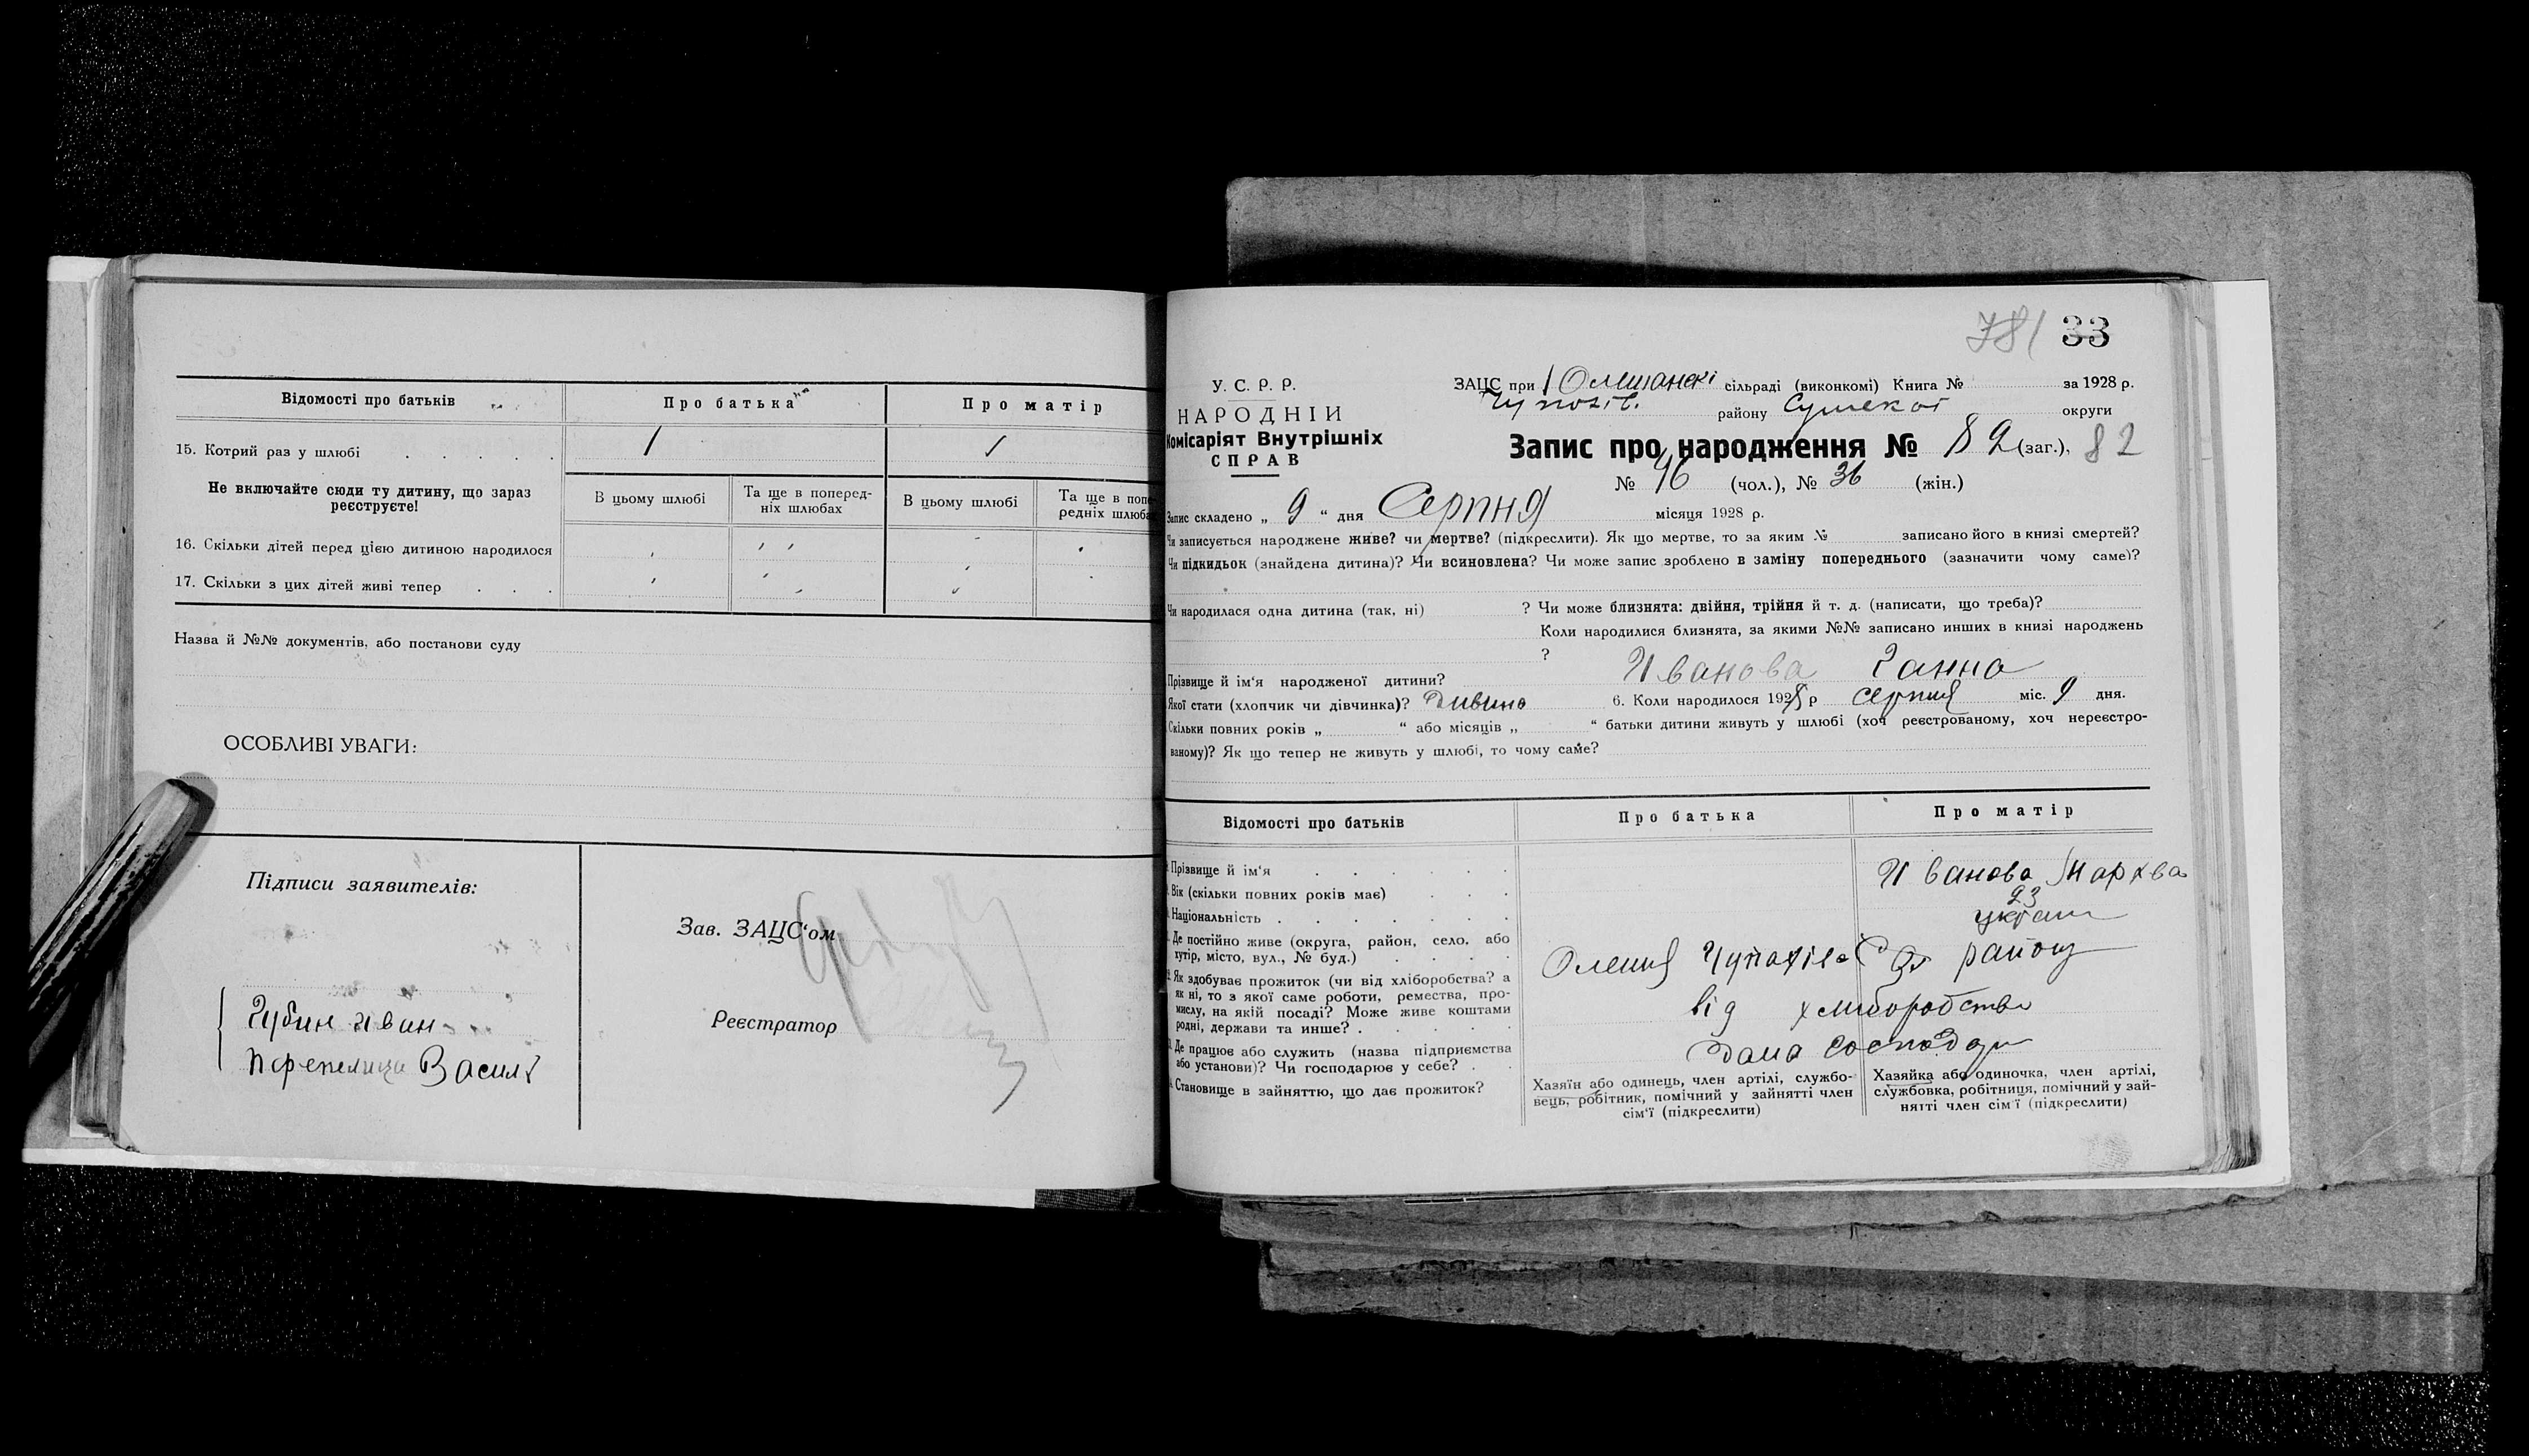 Відомості про батьків
Про батька
Про матір
15. Котрий раз у шлюбі
Не включайте сюди ту дитину, що зараз
реєструєте!
В цьому шлюбі
Та ще в поперед-
ніх шлюбах
В цьому шлюбі
Та ще в попе
редніх шлюбах
16. Скільки дітей перед цією дитиною народилося
17. Скільки з цих дітей живі тепер
Назва й №№ документів, або постанови суду
ОСОБЛИВІ УВАГИ:
Підписи заявителів:
Зав. ЗАЦС‘ом
Губин Иван
Реєстратор
Перепелица Василь
781 33
У. С. Р. Р.
НАРОДНІЙ
Комісаріят Внутрішніх
СПРАВ
ЗАЦС при Олешанскі сільраді (виконкомі) Книга № за 1928 р.
району Сумскої округи
Запис про народження № 82 (заг.), 82
№ 46 (чол.), № 36 (жін.)
Запис складено „ 9 “ дня Серпня місяця 1928 р.
Чи записується народжене живе? чи мертве? (підкреслити). Як що мертве, то за яким № записано його в книзі смертей?
Чи підкидьок (знайдена дитина)? Чи всиновлена? Чи може запис зроблено в заміну попереднього (зазначити чому саме)?
Чи народилася одна дитина (так, ні) ? Чи може близнята: двійня, трійня й т. д. (написати, що треба)?
Коли народилися близнята, за якими №№ записано инших в книзі народжень
?
Прізвище й ім‘я народженої дитини? Иванова Ганна
Якої стати (хлопчик чи дівчинка)? Дивина 6. Коли народилося 1928 р серпня міс. 9 дня.
Скільки повних років „ “ або місяців „ “ батьки дитини живуть у шлюбі (хоч реєстрованому, хоч нереєстро-
ваному)? Як що тепер не живуть у шлюбі, то чому саме?
Відомості про батьків
Про батька
Про матір
Прізвище й ім‘я
Иванова Мархва
Вік (скільки повних років має)
23
Національність
україн
Де постійно живе (округа, район, село, або
хутір, місто, вул., № буд.)
району
Як здобуває прожиток (чи від хліборобства? а
як ні, то з якої саме роботи, ремества, про-
мислу, на якій посаді? Може живе коштами
родні, держави та инше?
від хлиборобства
Де працює або служить (назва підприємства
або установи)? Чи господарює у себе?
Дома
Становище в зайняттю, що дає прожиток?
Хазяїн або одинець, член артілі, службо-
вець, робітник, помічний у зайнятті член
сім‘ї (підкреслити)
Хазяйка або одиночка, член артілі,
службовка, робітниця, помічний у зай-
нятті член сім‘ї (підкреслити)